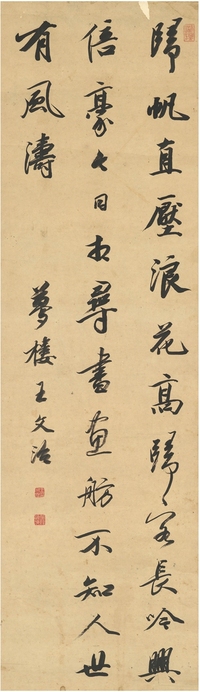 歸帆直壓浪花高歸客長吟興
倍豪久日相尋書畫舫不知人世
有風濤
夢樓王文治